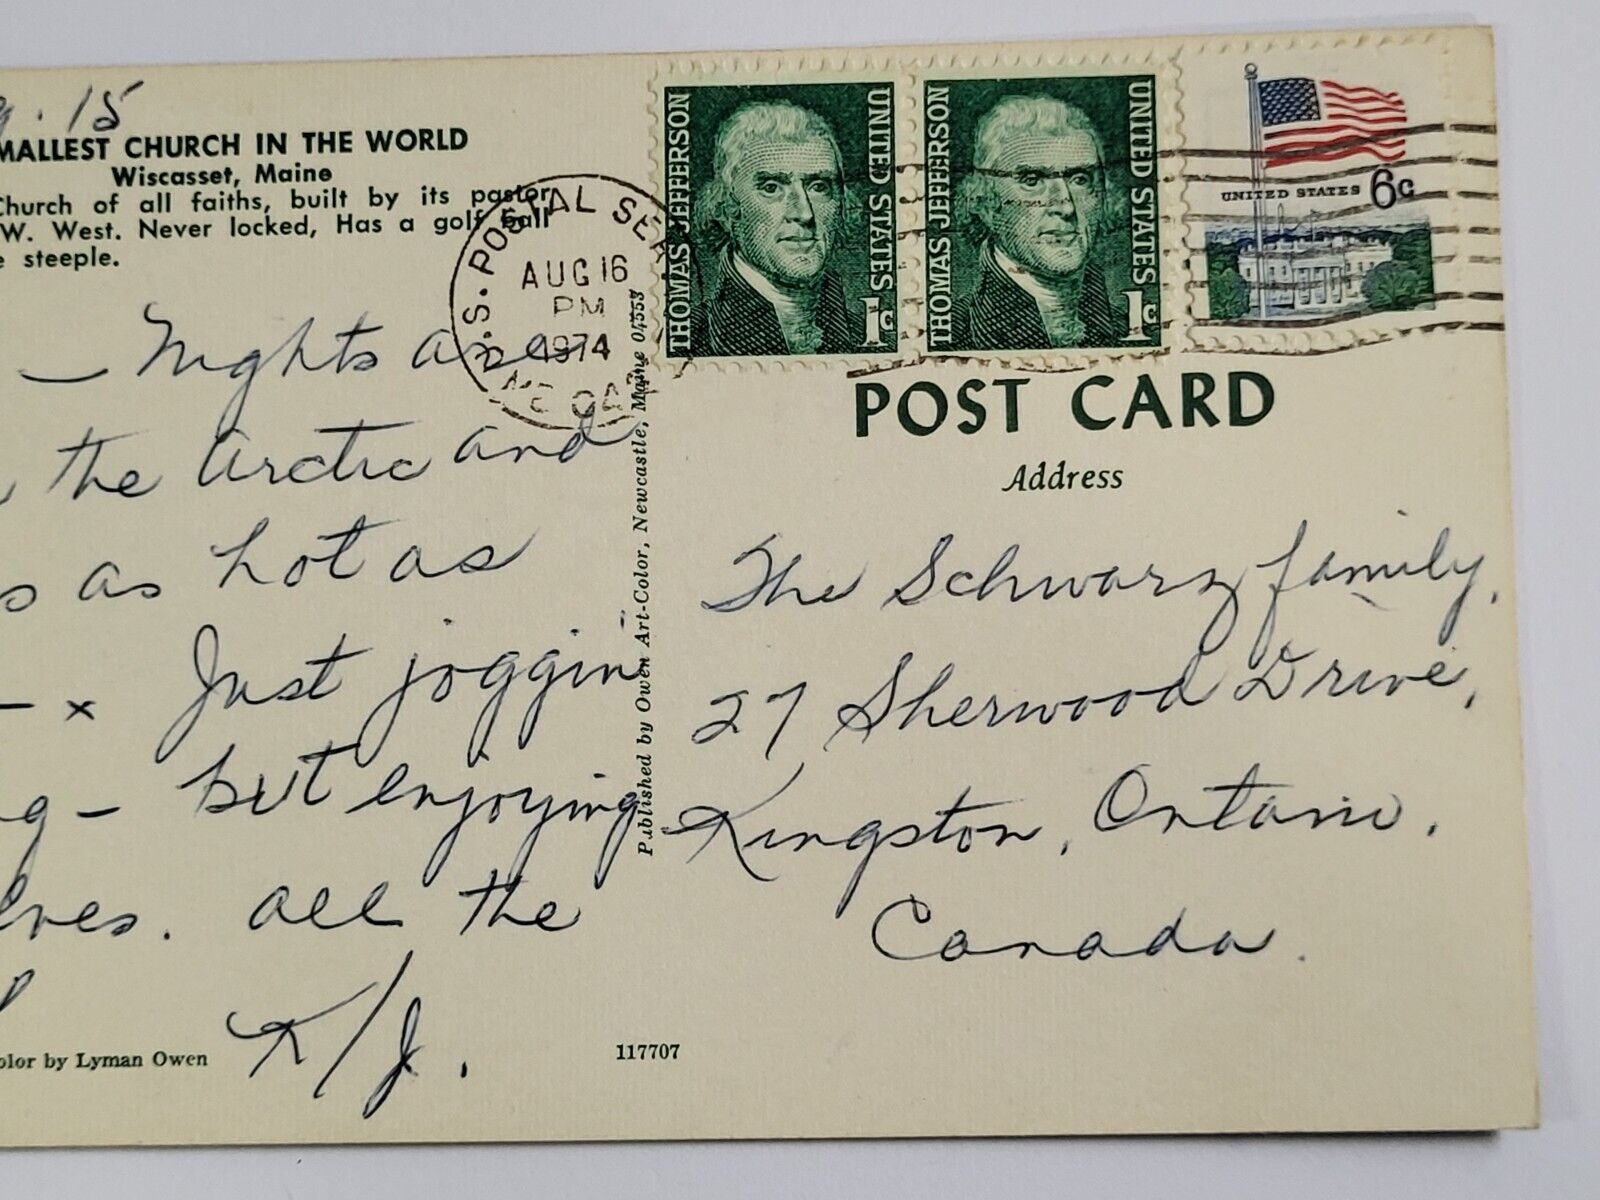 15
MALLEST CHURCH IN THE WORLD
Wiscasset, Maine
Church of all faiths, built by its pastor
W. West. Never locked, Has a golf ball
e steeple.
— Nights are
the Arctic and
s as hot as
— x Just joggin
g — but enjoying
lves. all the
K/J.
olor by Lyman Owen
117707
Published by Owen Art-Color, Newcastle, Maine 04553
U.S. POSTAL SE
AUG 16
PM
1974
THOMAS JEFFERSON
UNITED STATES
1c
THOMAS JEFFERSON
UNITED STATES
1c
UNITED STATES 6c
POST CARD
Address
The Schwarz family,
27 Sherwood Drive,
Kingston, Ontario.
Canada.